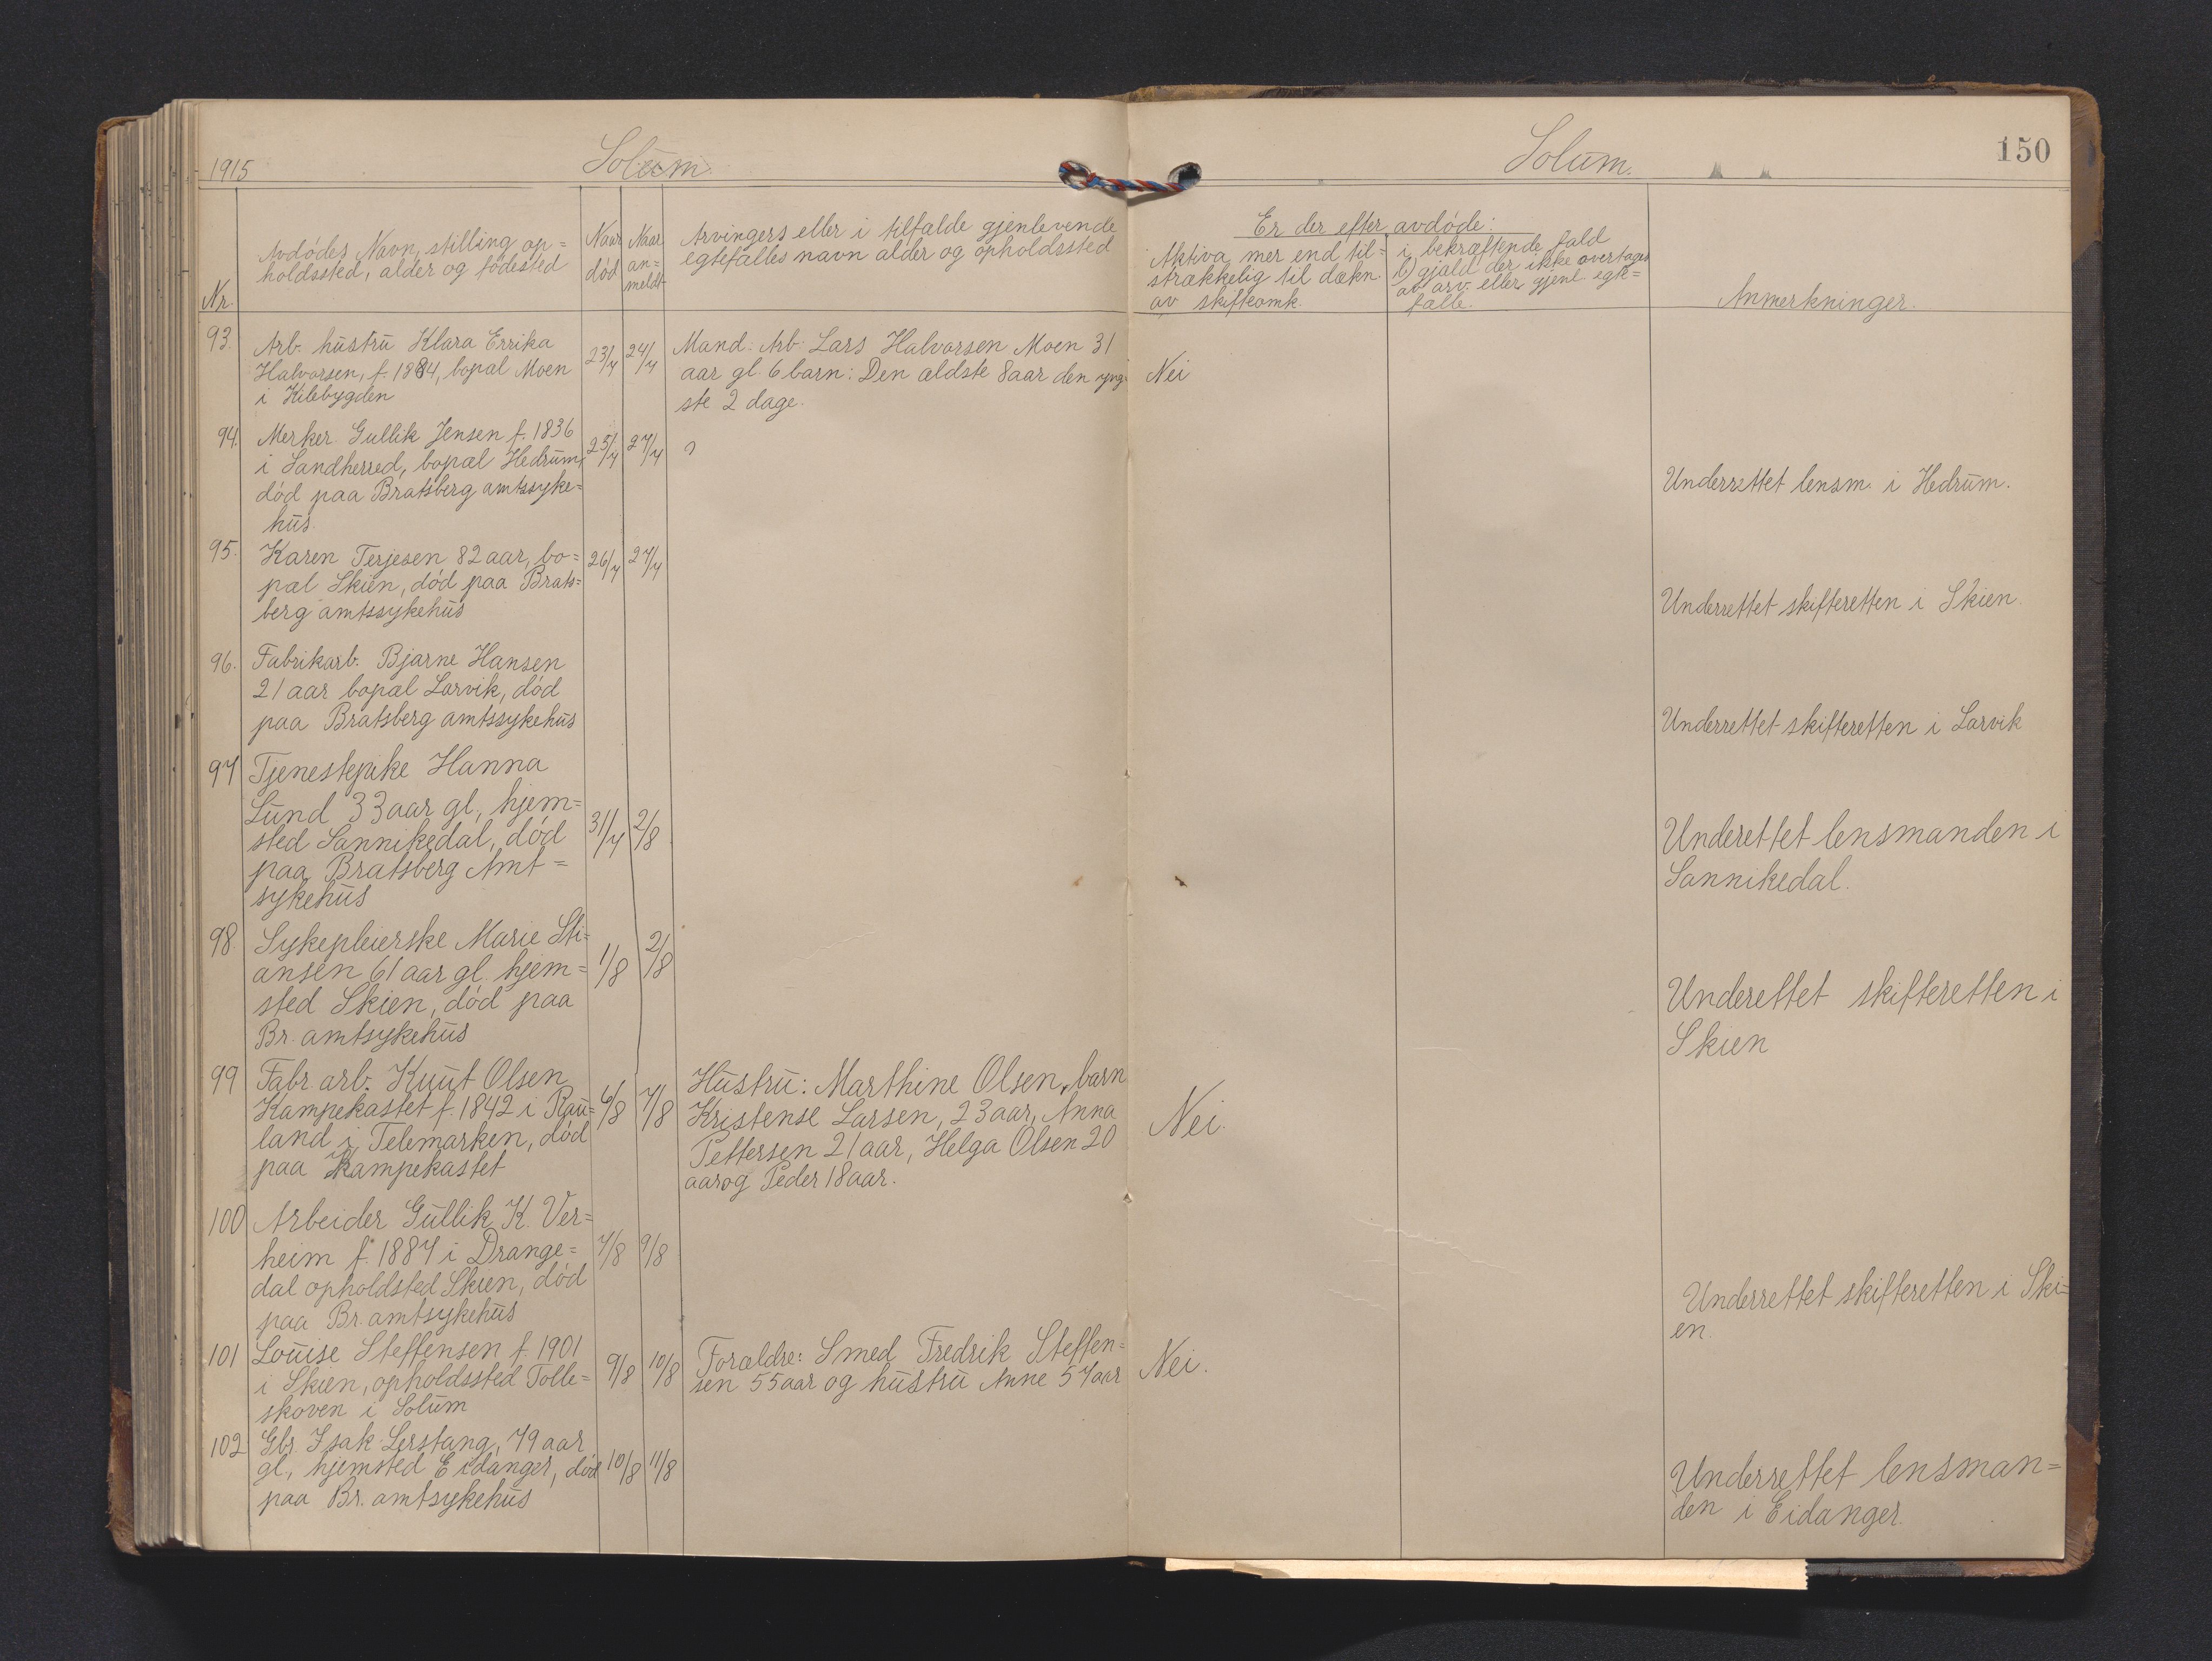 1915
Solum.
Solum.
150
Nr.
Avdødes Navn, stilling op=
holdssted, alder og fødested
Naar
død
Naar
an=
meldt
Arvingers eller i tilfalde gjenlevende
egtefælles navn alder og opholdssted
Er der efter avdøde:
Aktiva mer end til=
strækkelig til dækn.
av skifteomk.
i bekræftende fald
gjæld der ikke overtages
av arv. eller gjenl. egte=
fælle.
Anmerkninger.
93. Arb. hustru Klara Errika
Halvorsen, f. 1884, bopæl Moen
i Kilebygden
23/7 24/7
Mand: Arb. Lars Halvorsen Moen 31
aar gl. 6 barn: Den ældste 8 aar den yng-
ste 2 dage.
Nei
94. Merker. Gullik Jensen f. 1836
i Sandherred, bopæl Hedrum,
død paa Bratsberg amtssyke=
hus.
25/7 27/7 ?
Underrettet lensm. i Hedrum.
95. Karen Terjesen 82 aar, bo=
pæl Skien, død paa Brats=
berg amtssykehus
26/7 27/7
Underrettet skifteretten i Skien
96. Fabrikarb. Bjarne Hansen
21 aar bopæl Larvik, død
paa Bratsberg amtssykehus
Underrettet skifteretten i Larvik
97 Tjenestepike Hanna
Lund 33 aar gl., hjem=
sted Sannikedal, død
paa Bratsberg Amt=
sykehus
31/7 2/8
Underettet lensmanden i
Sannikedal.
98. Sykepleierske Marie Sti=
ansen 61 aar gl. hjem=
sted Skien, død paa
Br. amtsykehus
1/8 2/8
Underettet skifteretten i
Skien
99 Fabr. arb. Knut Olsen
Kampekastet f. 1842 i Rau=
land i Telemarken, død
paa Kampekastet
6/8 7/8
Hustru: Marthine Olsen, barn
Kristense Larsen, 23 aar, Anna
Pettersen 21 aar, Helga Olsen 20
aar og Peder 18 aar.
Nei.
100 Arbeider Gullik K. Ver=
heim f. 1887 i Drange=
dal opholdsted Skien, død
paa Br. amtsykehus
7/8 9/8
Underrettet skifteretten i Ski=
en.
101 Louise Steffensen f. 1901
i Skien, opholdssted Tolle=
skoven i Solum
9/8 10/8
Forældre: Smed Fredrik Steffen=
sen 55 aar og hustru Anne 57 aar
Nei.
102 Gbr. Isak Lerstang, 79 aar
gl., hjemsted Eidanger, død
paa Br. amtsykehus
10/8 11/8
Underrettet lensman=
den i Eidanger.